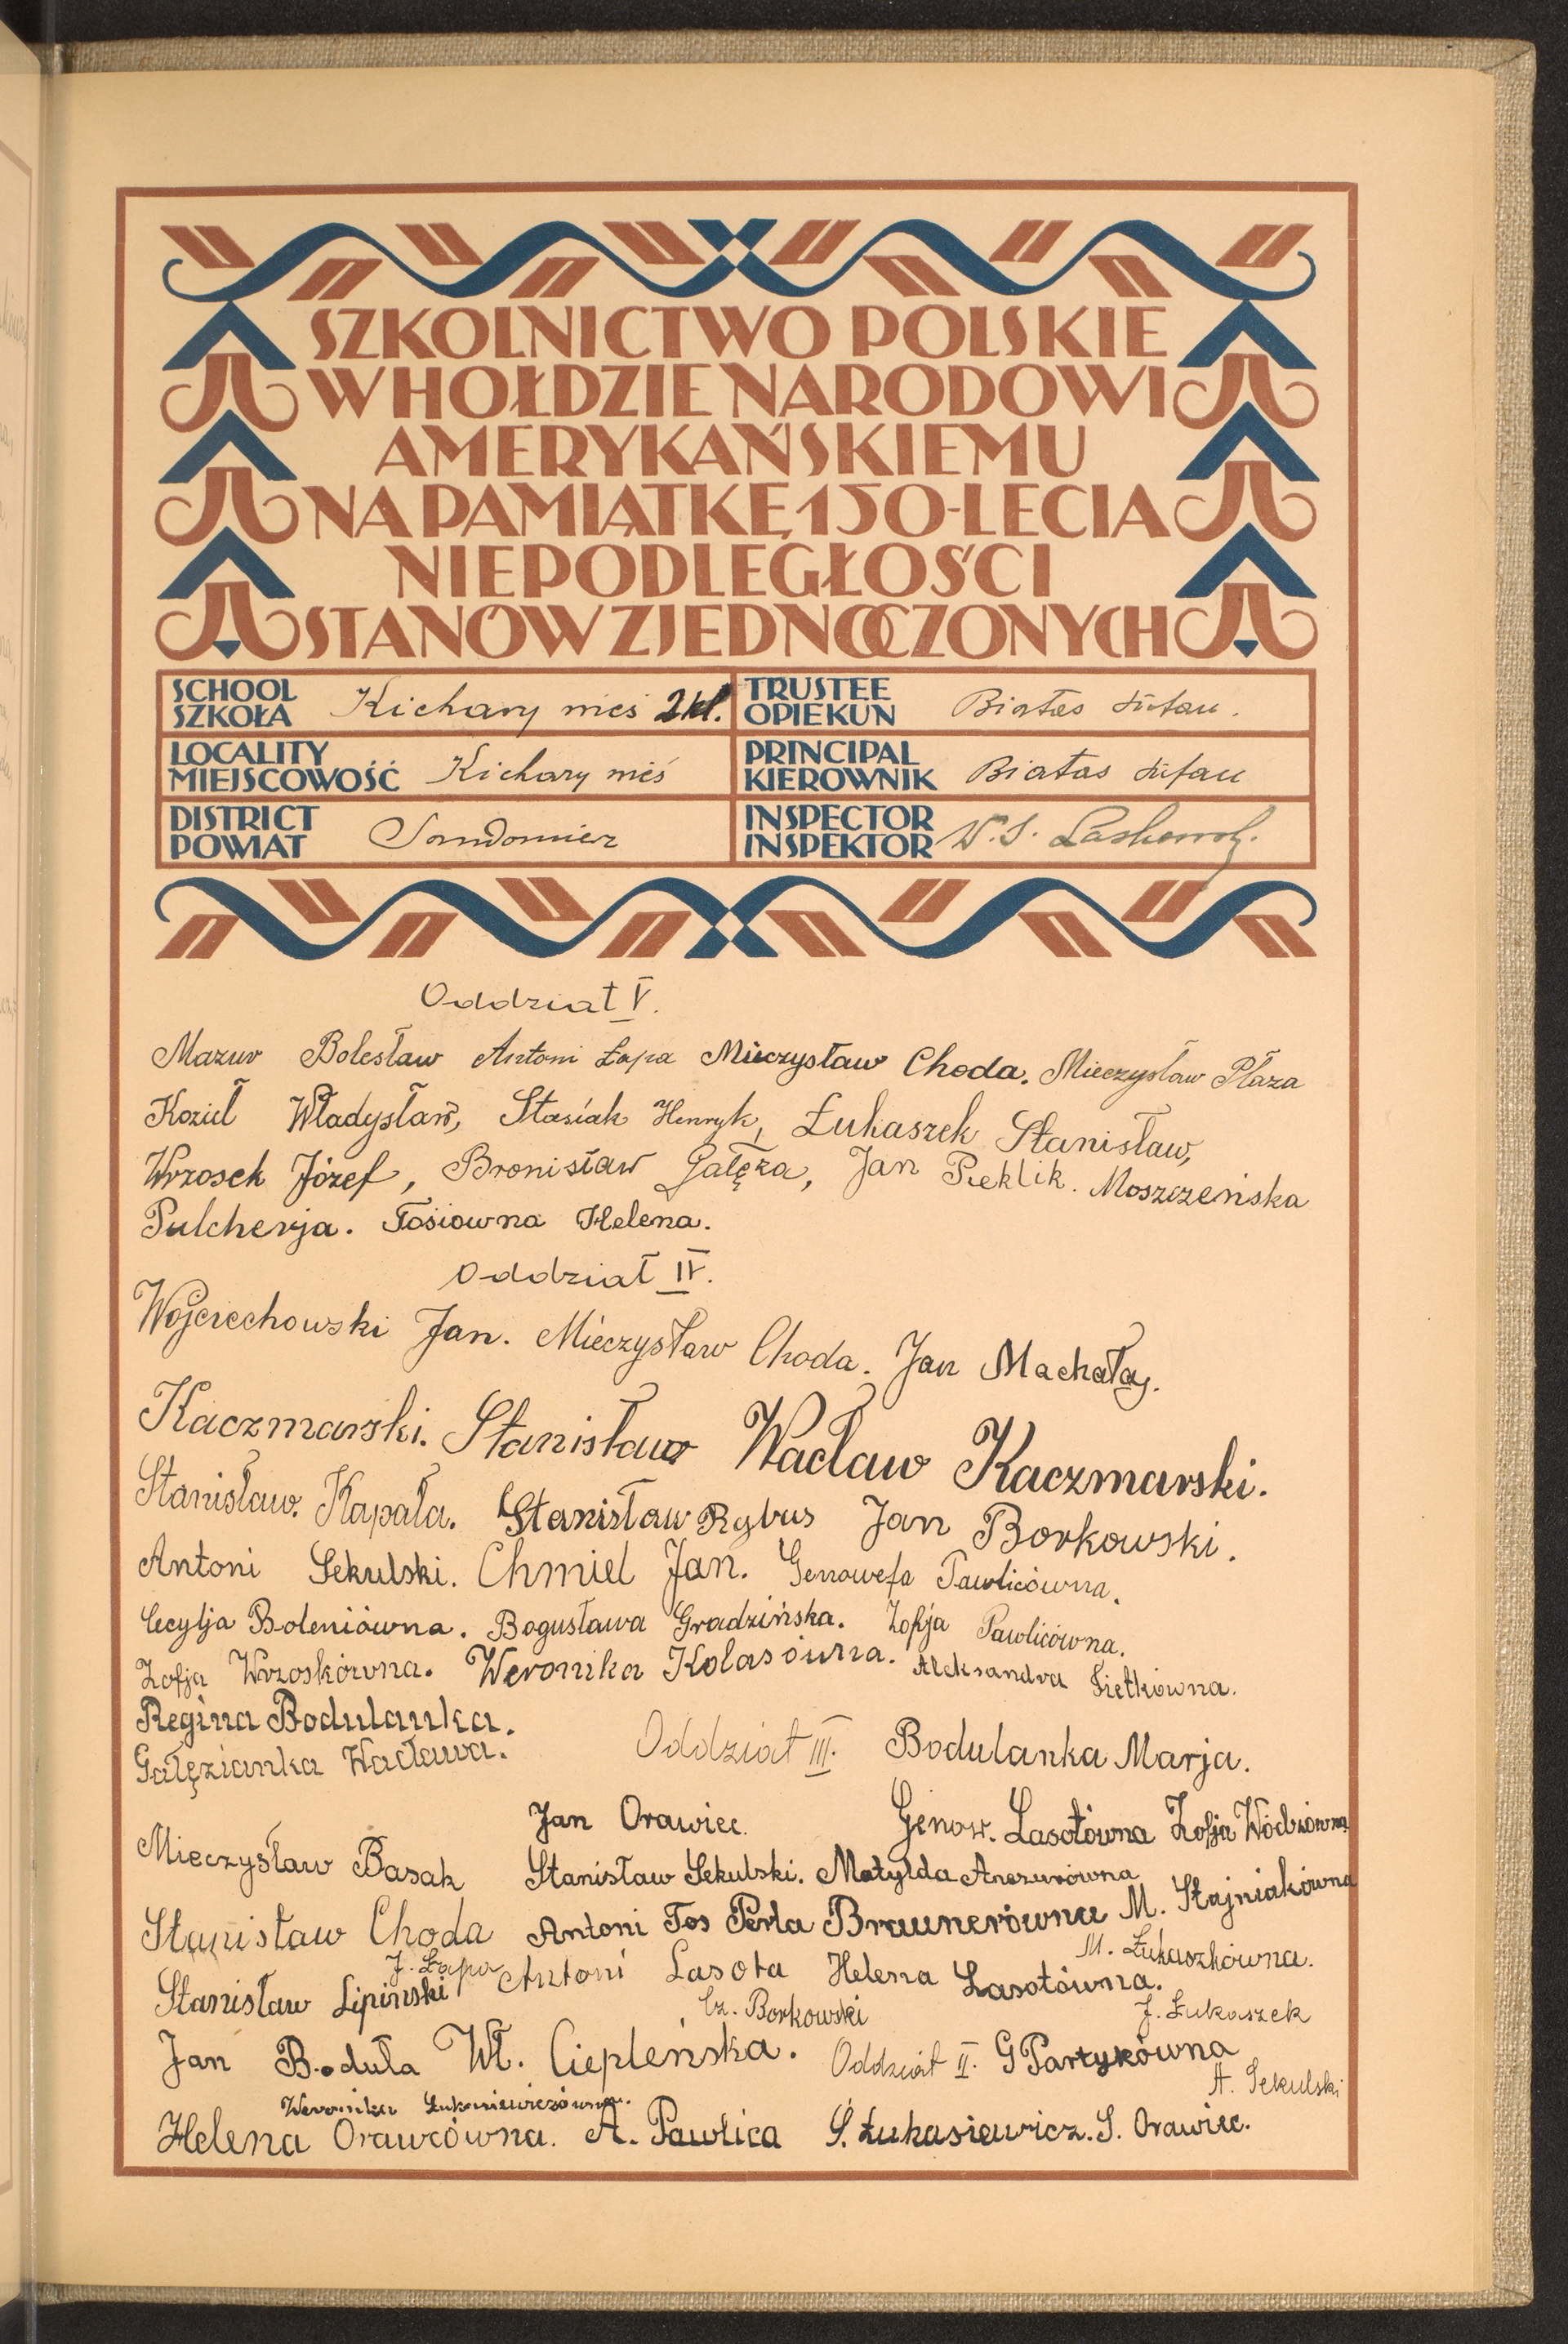 SZKOLNICTWO POLSKIE
W HOŁDZIE NARODOWI
AMERYKAŃSKIEMU
NA PAMIĄTKĘ 150-LECIA
NIEPODLEGŁOŚCI
STANÓW ZJEDNOCZONYCH
SCHOOL
SZKOŁA Kichary wieś 2 kl.
TRUSTEE
OPIEKUN Białas
LOCALITY
MIEJSCOWOŚĆ Kichary wieś
PRINCIPAL
KIEROWNIK Białas
DISTRICT
POWIAT Sandomierz
INSPECTOR
INSPEKTOR
Oddział V.
Mazur Bolesław Antoni Łapa Mieczysław Choda. Mieczysław Płaza
Kozieł Władysław, Stasiak Henryk, Łukaszek Stanisław,
Wrzosek Józef, Bronisław Gałęza, Jan Pieklik. Moszczeńska
Pulcherja. Tosiowna Helena.
Oddział IV.
Wojciechowski Jan. Mieczysław Choda. Jan Machałaj.
Kaczmarski. Stanisław Wacław Kaczmarski.
Stanisław. Kapała. Stanisław Rybus Jan Borkowski.
Antoni Sekulski. Chmiel Jan. Genowefa Pawlicówna.
Cecylja Boleniówna. Bogusława Gradzińska. Zofja Pawlicówna.
Zofja Wrzoskówna. Weronika Kolasówna. Aleksandra Sietkówna.
Regina Bodulanka.
Gałęzianka Wacława. Oddział III. Bodulanka Marja.
Jan Orawiec. Genow. Lasotówna Zofja Wódzówna
Mieczysław Basak Stanisław Sekulski. Matylda
Stanisław Choda Antoni Tos Perla Braunerówna M. Stajniakówna
J. Łapa M. Łukaszkówna.
Stanisław Lipiński Antoni Lasota Helena Lasotówna.
Cz. Borkowski J. Łukaszek
Jan Boduła Wł. Ciepleńska. Oddział II. G Partykówna
A. Sekulski
Weronika Łukasiewiczówna.
Helena Orawcówna. A. Pawlica S. Łukasiewicz. S. Orawiec.